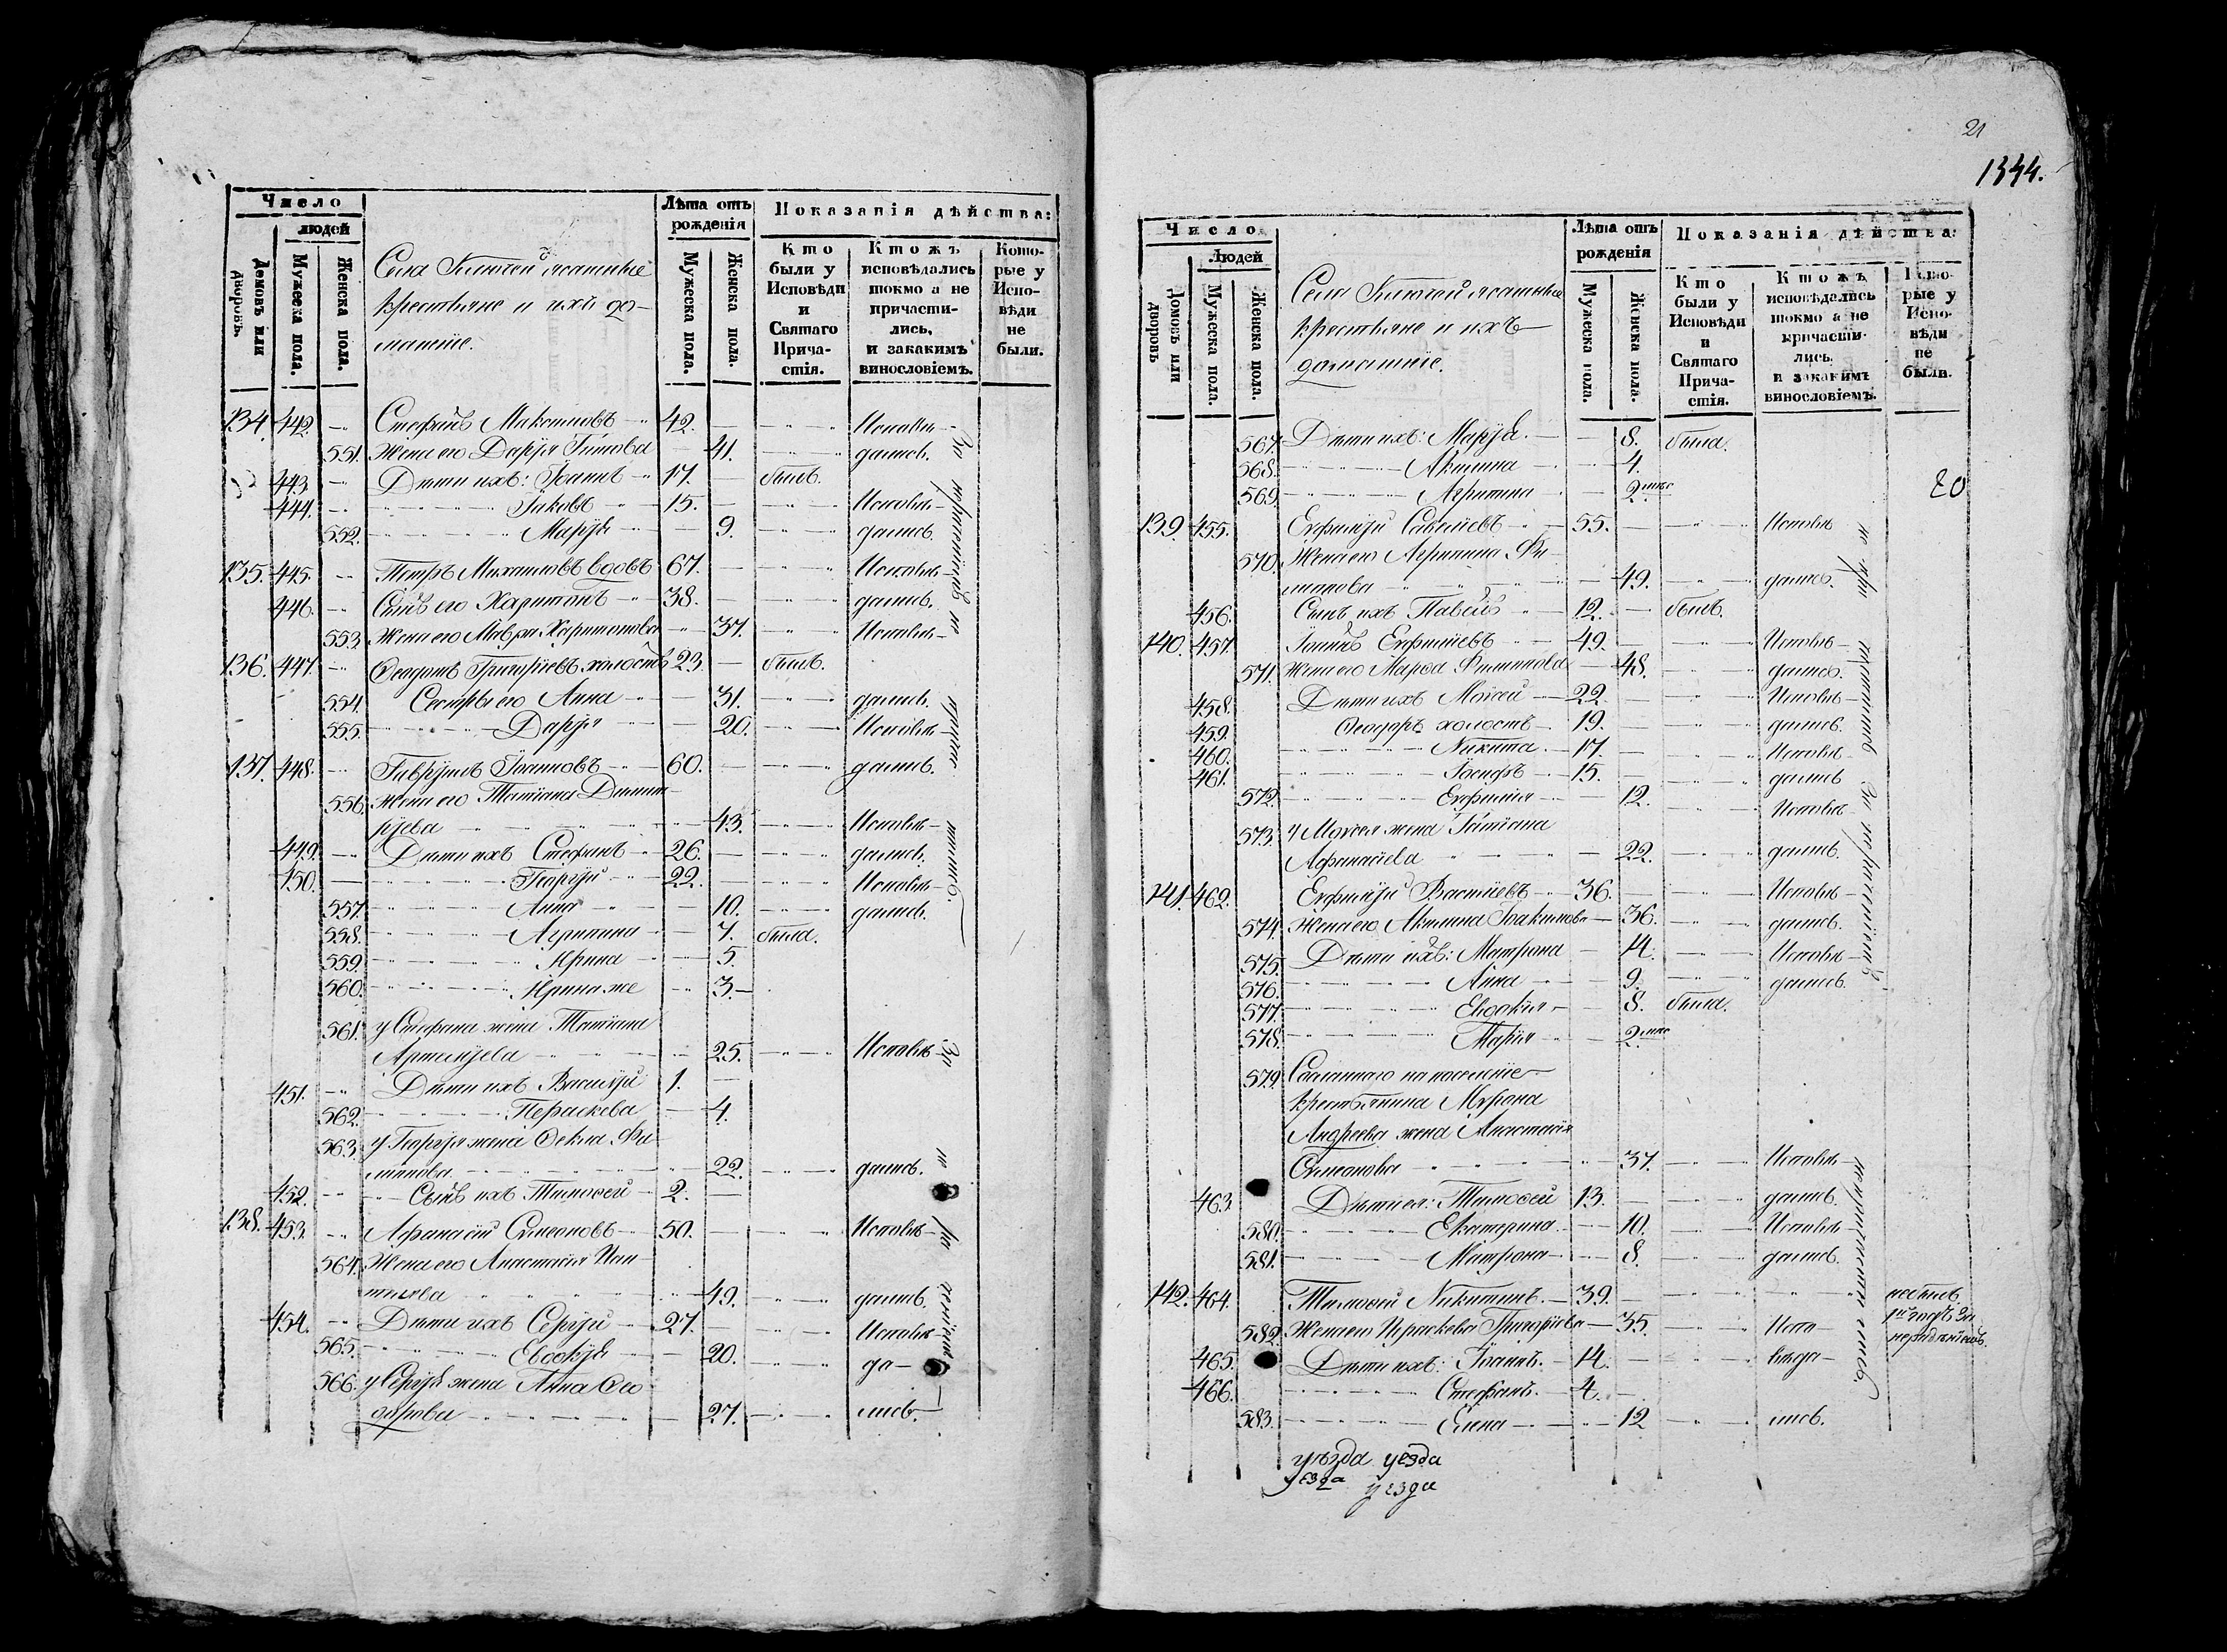 Число
людей
Домовъ или дворовъ.
Мужеска пола.
Женска пола.
Села ясашные
крестьяне и ихъ до-
машніе.
Лѣта отъ рожденія
Мужеска пола.
Женска пола.
Показанія дѣйства:
Кто были у Исповѣди и Святаго Прича-стія.
Ктожъ исповѣдались токмо а не причасти-лись, и закакимъ винословіемъ.
Кото-рые у Испо-вѣди не были.
134. 442. Стефанъ Максимовъ 42. Исповѣ-
551. Жена его Дарья Титова 41. дались.
443. Дѣти ихъ: Іоаннъ 17. былъ.
444. Іаковъ 15. Исповѣ-
552. Марья 9. дались.
135. 445. Петръ Михаиловъ вдовъ 67. Исповѣ-
446. Сынъ его Харитонъ 38. дались.
553. Жена его Мавра Харитонова 37. Исповѣ-
136. 447. Ѳеодотъ Григорьевъ холостъ 23. былъ.
554. Сестры его Анна 31. дались.
555. Дарья 20. Исповѣ-
137. 448. Гаврилъ Іоанновъ 60. дались.
556. Жена его Татіана Димит-
ріева 43. Исповѣ-
449. Дѣти ихъ Стефанъ 26. дались.
450. Георгій 22. Исповѣ-
557. Анна 10. дались.
558. Агрипина 7. была.
559. Ирина 5.
560. Ирина же 3.
561. у Стефана жена Татіана
Артемьева 25. Исповѣ-
451. Дѣти ихъ Василій 1.
562. Параскева 4.
563. у Георгія жена Ѳекла Фи-
липова 22. дались.
452. Сынъ ихъ Тимоѳей 2.
138. 453. Афанасій Симеоновъ 50. Исповѣ-
564. Жена его Анастасія Пан-
тилева 49. дались.
454. Дѣти ихъ Сергій 27. Исповѣ-
565. Евдокія 20. да-
566. у Сергія жена Анна Ѳео-
дорова 27. лись.
21
1344.
20
Число
Людей
Домовъ или дворовъ
Мужеска пола.
Женска пола.
Села ясашные
крестьяне и ихъ
домашніе.
Лѣта отъ рожденія
Мужеска пола.
Женска пола.
Показанія дѣйства:
Кто были у Исповѣди и Святаго Прича-стія.
Ктожъ исповѣдались токмо а не причасти-лись. и закакимъ винословіемъ.
Кото-рые у Испо-вѣди не были.
567. Дѣти ихъ: Марья. 8. была.
568. Акилина 4.
569. Агрипина 2. мѣс
139. 455. Евфимій Савельевъ 55. Исповѣ
570. Жена его Агрипина Фи-
липова 49. дались.
456. Сынъ ихъ Павелъ 12. былъ.
140. 457. Іоаннъ Евфимьевъ 49. Исповѣ-
571. Жена его Марѳа Филипова 48. дались.
458. Дѣти ихъ Моисей 22. Исповѣ-
459. Ѳеодоръ холостъ 19. дались.
460. Никита 17. Исповѣ-
461. Іосифъ 15. дались
572. Евфимія 12. Исповѣ-
573. у Моисея жена Татіана
Афанасіева 22. дались.
141. 462. Евфимій Васильевъ 36. Исповѣ-
574. Жена его Акилина Іоакимова 36. дались.
575. Дѣти ихъ: Матрона 14. Исповѣ-
576. Анна 9. дались.
577. Евдокія 8. была.
578. Марія 2. мѣс
579. Сосланнаго на поселеніе
крестьянина Мирона
Андреева жена Анастасія
Симеонова 37. Исповѣ-
463. Дѣти ея: Тимоѳей 13. дались.
580. Екатерина 10. Исповѣ-
581. Матрона 8. дались.
142. 464. Тимоѳей Никитинъ. 39. не былъ
1й годъ за нерадѣніемъ.
582. Жена его Параскева Григорьева 35. Испо-
465. Дѣти ихъ: Іоаннъ. 14. вѣда-
466. Стефанъ. 4.
583. Елена 12 лись.
уѣзда уезда
уезда уезда